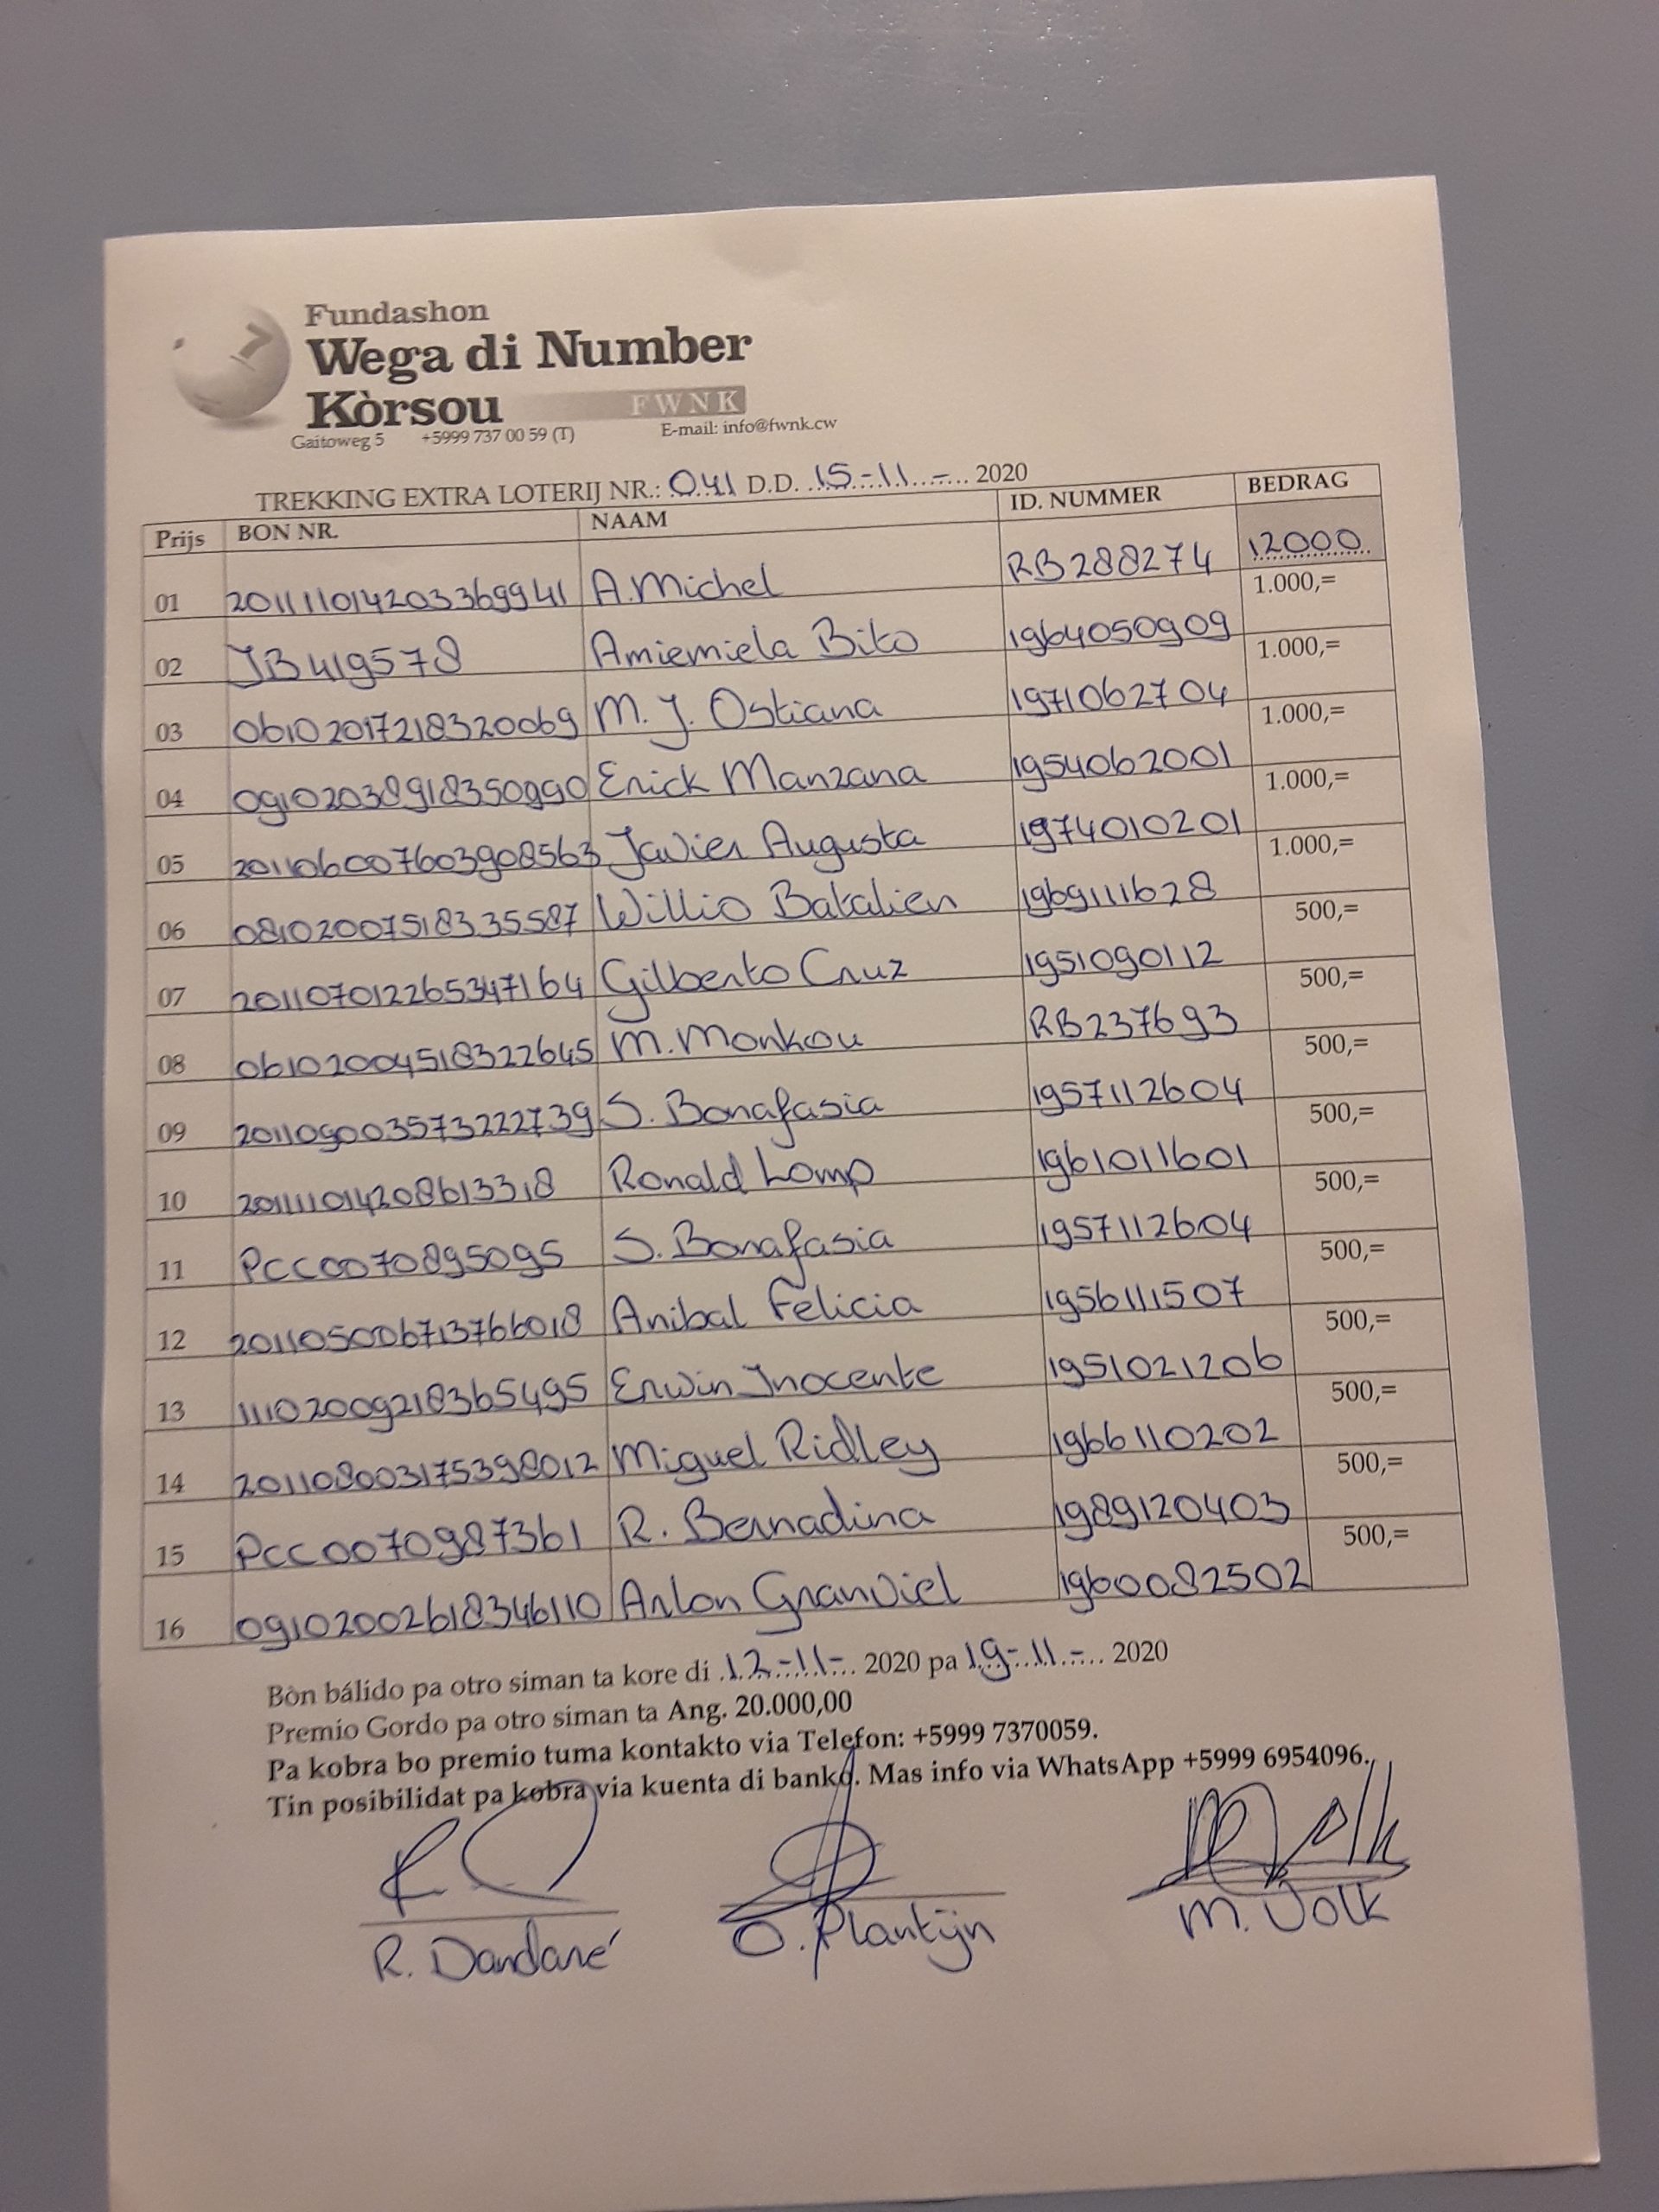 Fundashon
Wega di Number
Kòrsou FWNK
Gaitoweg 5 +5999 737 00 59 (T) E-mail: info@fwnk.cw
TREKKING EXTRA LOTERIJ NR.: 041 D.D. 15-11-. 2020
Prijs BON NR. NAAM ID. NUMMER BEDRAG
01 20111101420336994 1 A.Michel RB288274 12000
02 JB419578 Amiemiela Bito 1964050909 1.000,=
03 0610201721832 0069 M. J. Ostiana 1971062704 1.000,=
04 0910203891835 0990 Erick Manzana 1954062001 1.000,=
05 2011060076039 08563 Javier Augusta 1974010201 1.000,=
06 081020075183 35587 Willio Bakalien 1969111628 1.000,=
07 201107012265347164 Gilberto Cruz 1951090112 500,=
08 061020045183 22645 M. Monkou RB237693 500,=
09 201109003573222739 S. Bonafasia 1957112604 500,=
10 20111101420861 3318 Ronald Lomp 1961011601 500,=
11 PCC0070895095 S. Bonafasia 1957112604 500,=
12 201105006713766018 Anibal Felicia 1956111507 500,=
13 11102009218365495 Erwin Inocente 1951021206 500,=
14 201108003175398012 Miguel Ridley 1966110202 500,=
15 PCC0070987361 R. Bernadina 1989120403 500,=
16 09102002618346110 Arlon Granviel 1960082502 500,=
Bòn bálido pa otro siman ta kore di 12-11-. 2020 pa 19-11-. 2020
Premio Gordo pa otro siman ta Ang. 20.000,00
Pa kobra bo premio tuma kontakto via Telefon: +5999 7370059.
Tin posibilidat pa kobra via kuenta di banko. Mas info via WhatsApp +5999 6954096.
R. Dandaré O. Plantijn M. Jolk